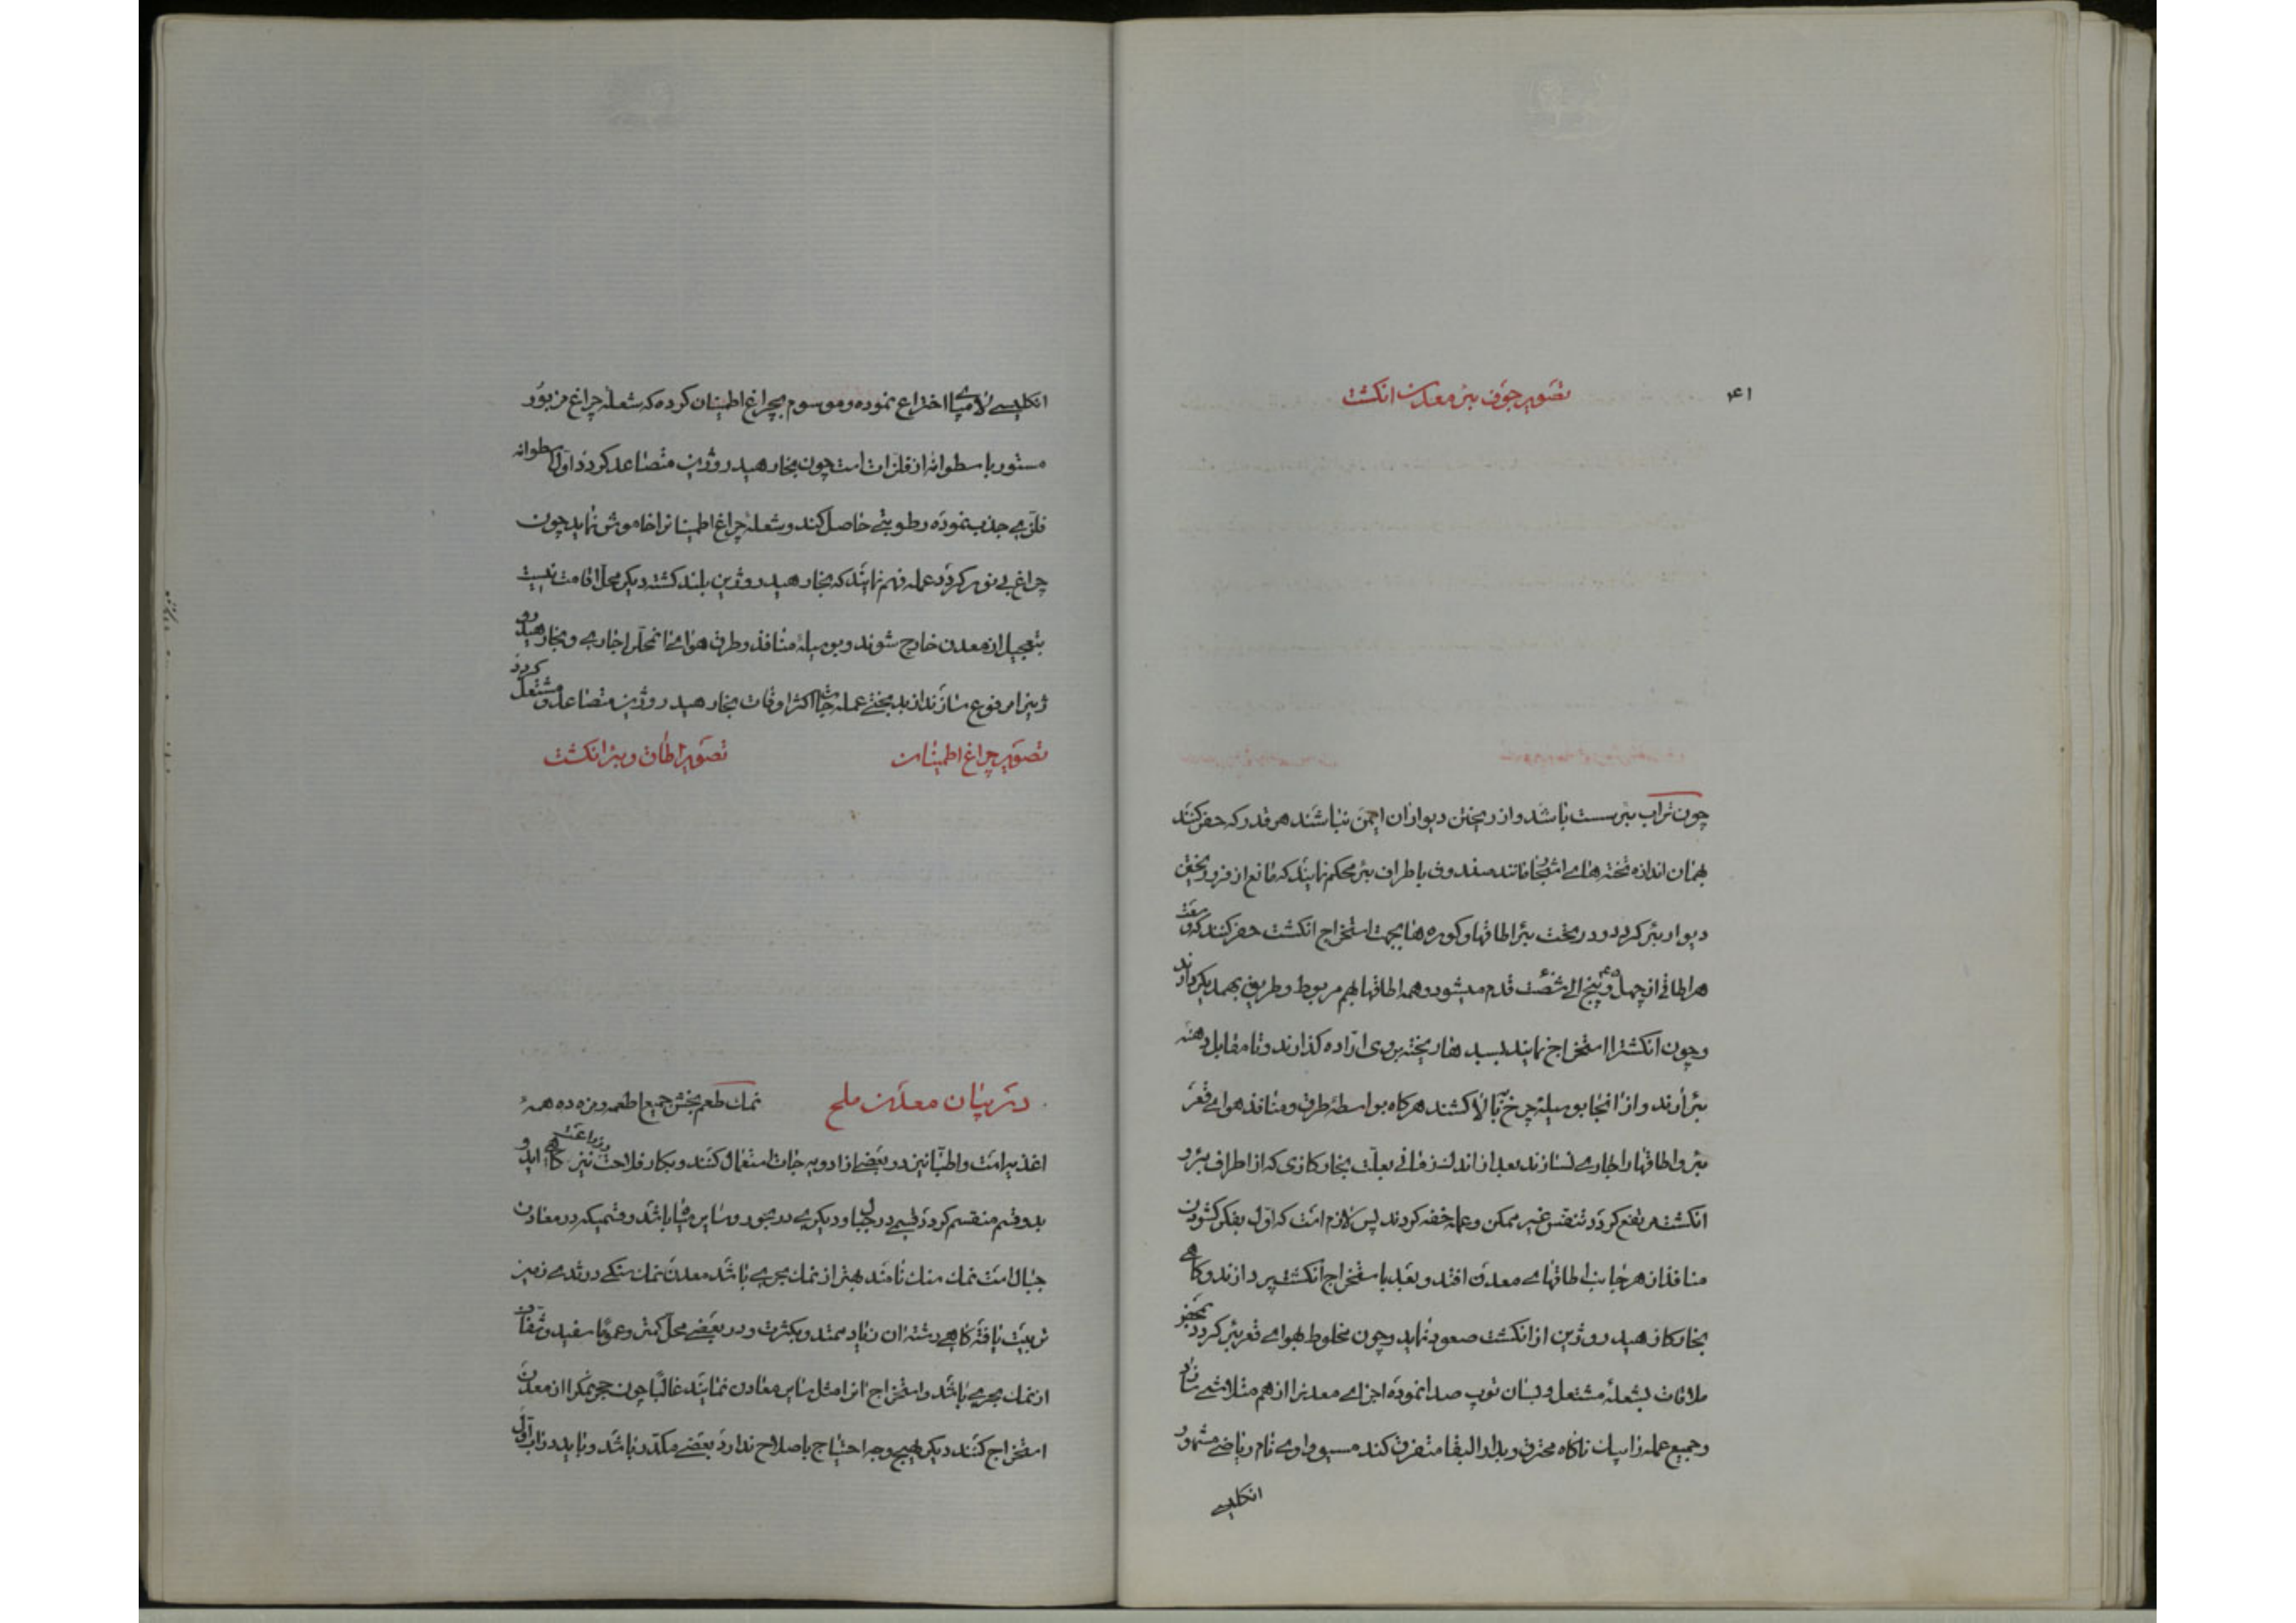 ۴۱
تصویر جوف بئر معدن انکشت
چون تراب بئر سست باشد و از ریختن دیوار ان ایمن نباشند هر قدر که حفر کنند
بهمان اندازه تخته های اشجار مانند صندوق باطراف بئر محکم نمایند که مانع از فرو ریختن
دیوار بئر کردد و در تحت بئر اطاقها و کوره ها بجهت استخراج انکشت حفر کنند که وسعت
هر اطاقی از چهل و پنج الی شصت قدم میشود و همه اطاقها بهم مربوط و طریق بهمدیکر دارند
و چون انکشترا استخراج نمایند بسبدها ریخته بروی ارّاده کذارند و تا مقابل دهنه
بئر ارند و از انجا بوسیلهٔ چرخ ببالا کشند هرکاه بواسطهٔ طرق و منافذ هوای قعر
بئر و اطاقها را جاری نسازند بعد از اندک زمانی بعلّت بخار کازی که از اطراف بئر و
انکشت مرتفع کردد تنفس غیر ممکن و عمله خفه کردند پس لازم است که اول بفکر کشودن
منافذ از هر جانب اطاقهای معدن افتد و بعد باستخراج انکشت پردازند و کاهی
بخار کاز هیدروژین از انکشت صعود نماید و چون مخلوط بهوای قعر بئر کردد بمحض
ملاقات بشعله مشتعل و بسان توپ صدا نموده اجزای معدنرا از هم متلاشی سازد
و جمیع عمله را بیک ناکاه محترق و بدار البقا متفرق کند مسیو داوی نام ریاضی مشهور
انکلیسی
انکلیسی لامپی اختراع نموده و موسوم بچراغ اطمینان کرده که شعلهٔ چراغ مزبور
مستور باسطوانهٔ از فلزات است چون بخار هیدروژین متصاعد کردد اول اسطوانه
فلزی جذب نموده رطوبتی حاصل کند و شعلهٔ چراغ اطمینانرا خاموش نماید چون
چراغ بی نور کردد عمله فهم نمایند که بخار هیدروژین بلند کشته دیکر محل اقامت نیست
بتعجیل از معدن خارج شوند و بوسیلهٔ منافذ و طرق هوای انمحل را جاری و بخار هیدرو
ژینرا مرفوع سازند از بدبختی عمله جات اکثر اوقات بخار هیدروژین متصاعد و مشتعل کردد
تصویر چراغ اطمینان
تصویر اطاق و بئر انکشت
در بیان معدن ملح
نمک طعم بخش جمیع اطعمه و مزه ده همهٔ
اغذیه است و اطبّا نیز در بعضی از ادویه جات استعمال کنند و بکار فلاحت و زراعت نیز کاهی اید و
بدو قسم منقسم کردد قسمی در جبال و دیکری در بحور و سایر میاه باشد و قسمیکه در معادن
جبال است نمک سنک نامند بهتر از نمک بحری باشد معدن نمک سنکی در ثدی زمین
تربیت یافته کاهی رشته ان زیاد ممتد و بکثرت و در بعضی محل کمتر و عموماً سفید و شفاف
از نمک بحری باشد و استخراج انرا مثل سایر معادن نمایند غالباً چون حجر نمکرا از معدن
استخراج کنند دیکر بهیچوجه احتیاج باصلاح ندارد بعضی مکدّر باشد و باید در اب اول